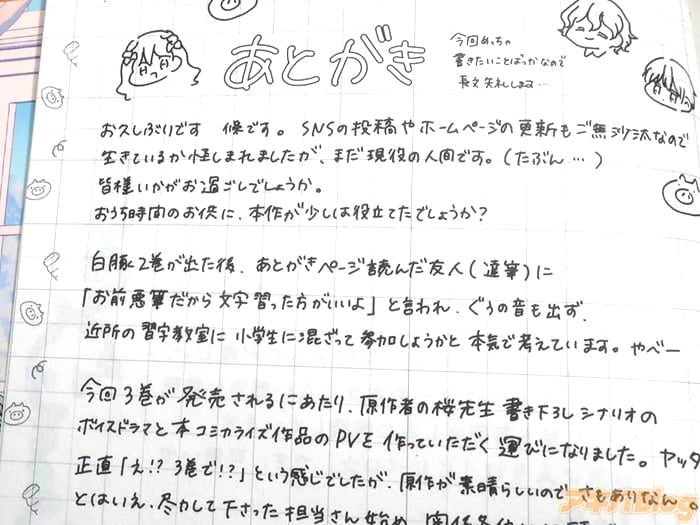 あとがき
今回めっちゃ
書きたいことばっかなので
長文失礼します…
お久しぶりです 候です。SNSの投稿やホームページの更新もご無沙汰なので
生きているか怪しまれましたが、まだ現役の人間です。(たぶん…)
皆様いかがお過ごしでしょうか。
おうち時間のお供に、本作が少しは役立てたでしょうか?
白豚2巻が出た後、あとがきページ読んだ友人(達筆)に
「お前悪筆だから文字習った方がいいよ」と言われ、ぐうの音も出ず、
近所の習字教室に小学生に混ざって参加しようかと本気で考えています。やべー
今回3巻が発売されるにあたり、原作者の桜先生書き下ろしシナリオの
ボイスドラマと本コミカライズ作品のPVを作っていただく運びになりました。ヤッタ
正直「え!?3巻で!?」という感じでしたが、原作が素晴らしいのでさもありなん。
とはいえ、尽力して下さった担当さん始め、関係各位
アキバBlog